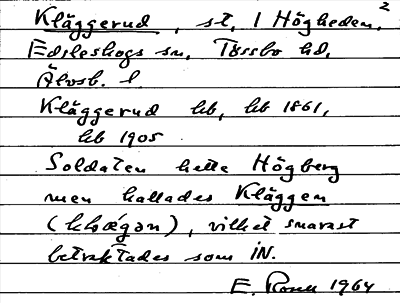 Kläggerud, st. 1 Högheden, 2
Edsleskogs sn, Tössbo hd,
Älvsb. l.
Kläggerud hb, hb 1861,
hb 1905
Soldaten hette Högberg
men kallades Kläggen
vilket snarast
betraktades som iN.
E. 1964